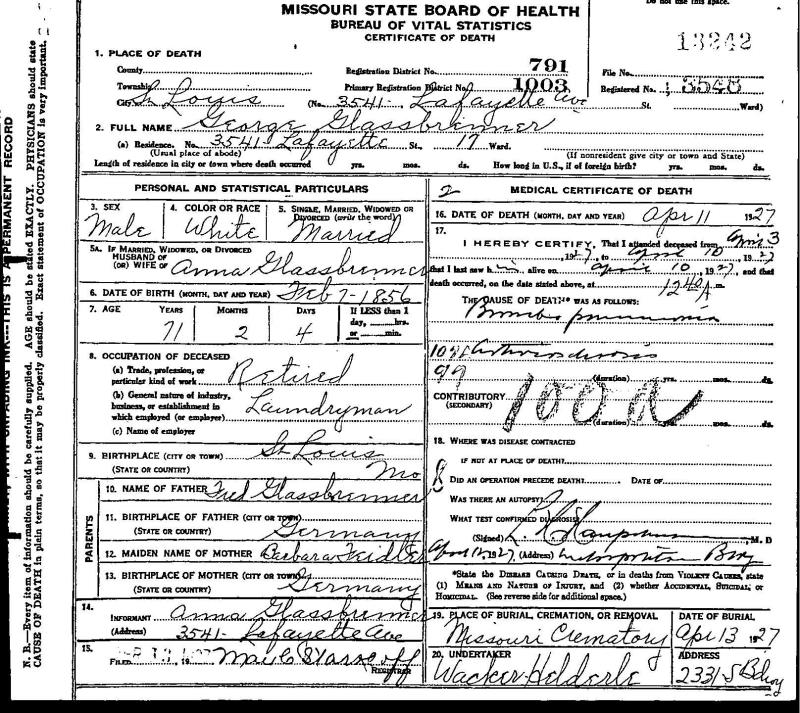 Do not use this space.
MISSOURI STATE BOARD OF HEALTH
BUREAU OF VITAL STATISTICS
CERTIFICATE OF DEATH
13242
1. PLACE OF DEATH
County
Registration District No. 791
File No.
Township
Primary Registration District No. 1003
Registered No. 3548
City St Louis (No. 3541- Lafayette Ave St. Ward)
2. FULL NAME George Glassbrenner
(a) Residence. No. 3541- Lafayette St., 17 Ward.
(Usual place of abode) (If nonresident give city or town and State)
Length of residence in city or town where death occurred yrs. mos. ds. How long in U.S., if of foreign birth? yrs. mos. ds.
PERSONAL AND STATISTICAL PARTICULARS
3. SEX Male
4. COLOR OR RACE White
5. SINGLE, MARRIED, WIDOWED OR DIVORCED (write the word) Married
5A. IF MARRIED, WIDOWED, OR DIVORCED
HUSBAND OF
(OR) WIFE OF Anna Glassbrenner
6. DATE OF BIRTH (MONTH, DAY AND YEAR) Feb 7-1856
7. AGE YEARS MONTHS DAYS If LESS than 1
day, hrs.
or min.
71 2 4
8. OCCUPATION OF DECEASED
(a) Trade, profession, or
particular kind of work Retired
(b) General nature of industry,
business, or establishment in
which employed (or employer) Laundryman
(c) Name of employer
9. BIRTHPLACE (CITY OR TOWN) St Louis
(STATE OR COUNTRY) Mo
PARENTS
10. NAME OF FATHER Fred Glassbrenner
11. BIRTHPLACE OF FATHER (CITY OR TOWN)
(STATE OR COUNTRY) Germany
12. MAIDEN NAME OF MOTHER Barbara Feidler
13. BIRTHPLACE OF MOTHER (CITY OR TOWN)
(STATE OR COUNTRY) Germany
14.
INFORMANT Anna Glassbrenner
(Address) 3541- Lafayette Ave
15.
FILED 13, 19
REGISTRAR
2 MEDICAL CERTIFICATE OF DEATH
16. DATE OF DEATH (MONTH, DAY AND YEAR) Apr 11 1927
17.
I HEREBY CERTIFY, That I attended deceased from April 3
, 1927, to April 10, 1927
that I last saw h im alive on April 10, 1927, and that
death occurred, on the date stated above, at 1240 A m.
THE CAUSE OF DEATH* WAS AS FOLLOWS:
Broncho pneumonia
Arteriosclerosis
99
(duration) yrs. mos. ds.
CONTRIBUTORY
(SECONDARY)
100 a
(duration) yrs. mos. ds.
18. WHERE WAS DISEASE CONTRACTED
IF NOT AT PLACE OF DEATH?
DID AN OPERATION PRECEDE DEATH? DATE OF
WAS THERE AN AUTOPSY?
WHAT TEST CONFIRMED DIAGNOSIS?
(Signed) , M. D
, 1927, (Address) Metropolitan Bldg
*State the DISEASE CAUSING DEATH, or in deaths from VIOLENT CAUSES, state
(1) MEANS AND NATURE OF INJURY, and (2) whether ACCIDENTAL, SUICIDAL, or
HOMICIDAL. (See reverse side for additional space.)
19. PLACE OF BURIAL, CREMATION, OR REMOVAL DATE OF BURIAL
Missouri Crematory Apr 13 1927
20. UNDERTAKER ADDRESS
Wacker-Helderle 2331 S Bdway
PERMANENT RECORD
N. B.—Every item of information should be carefully supplied. AGE should be stated EXACTLY. PHYSICIANS should state
CAUSE OF DEATH in plain terms, so that it may be properly classified. Exact statement of OCCUPATION is very important.